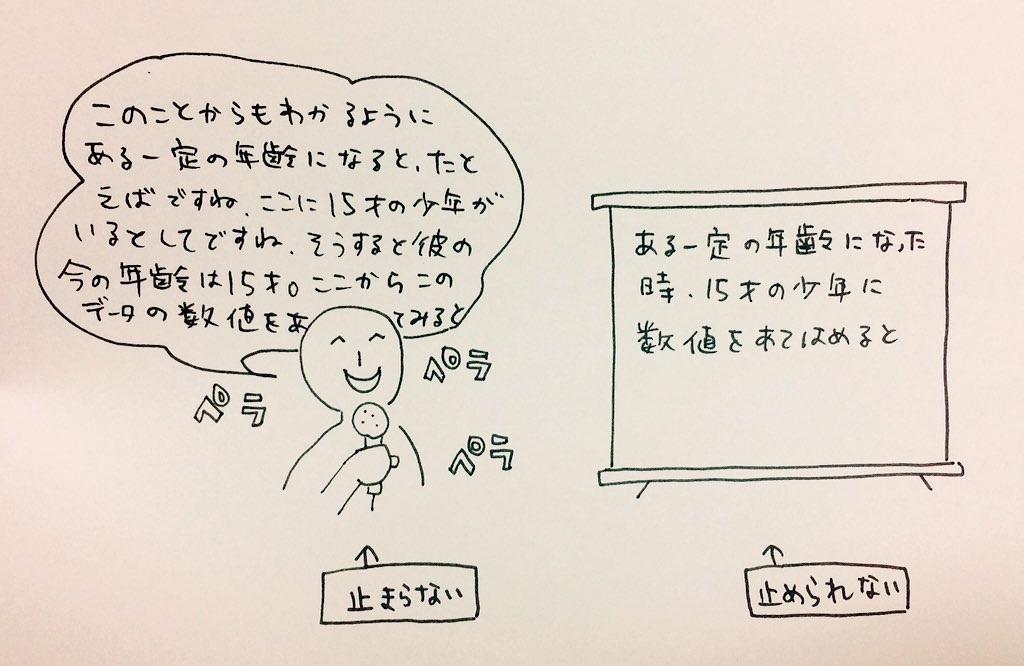 このことからもわかるように
ある一定の年齢になると、たと
えばですね、ここに15才の少年が
いるとしてですね、そうすると彼の
今の年齢は15才。ここからこの
データの数値をあ てみると
ペラ
ペラ
ペラ
止まらない
ある一定の年齢になった
時、15才の少年に
数値をあてはめると
止められない